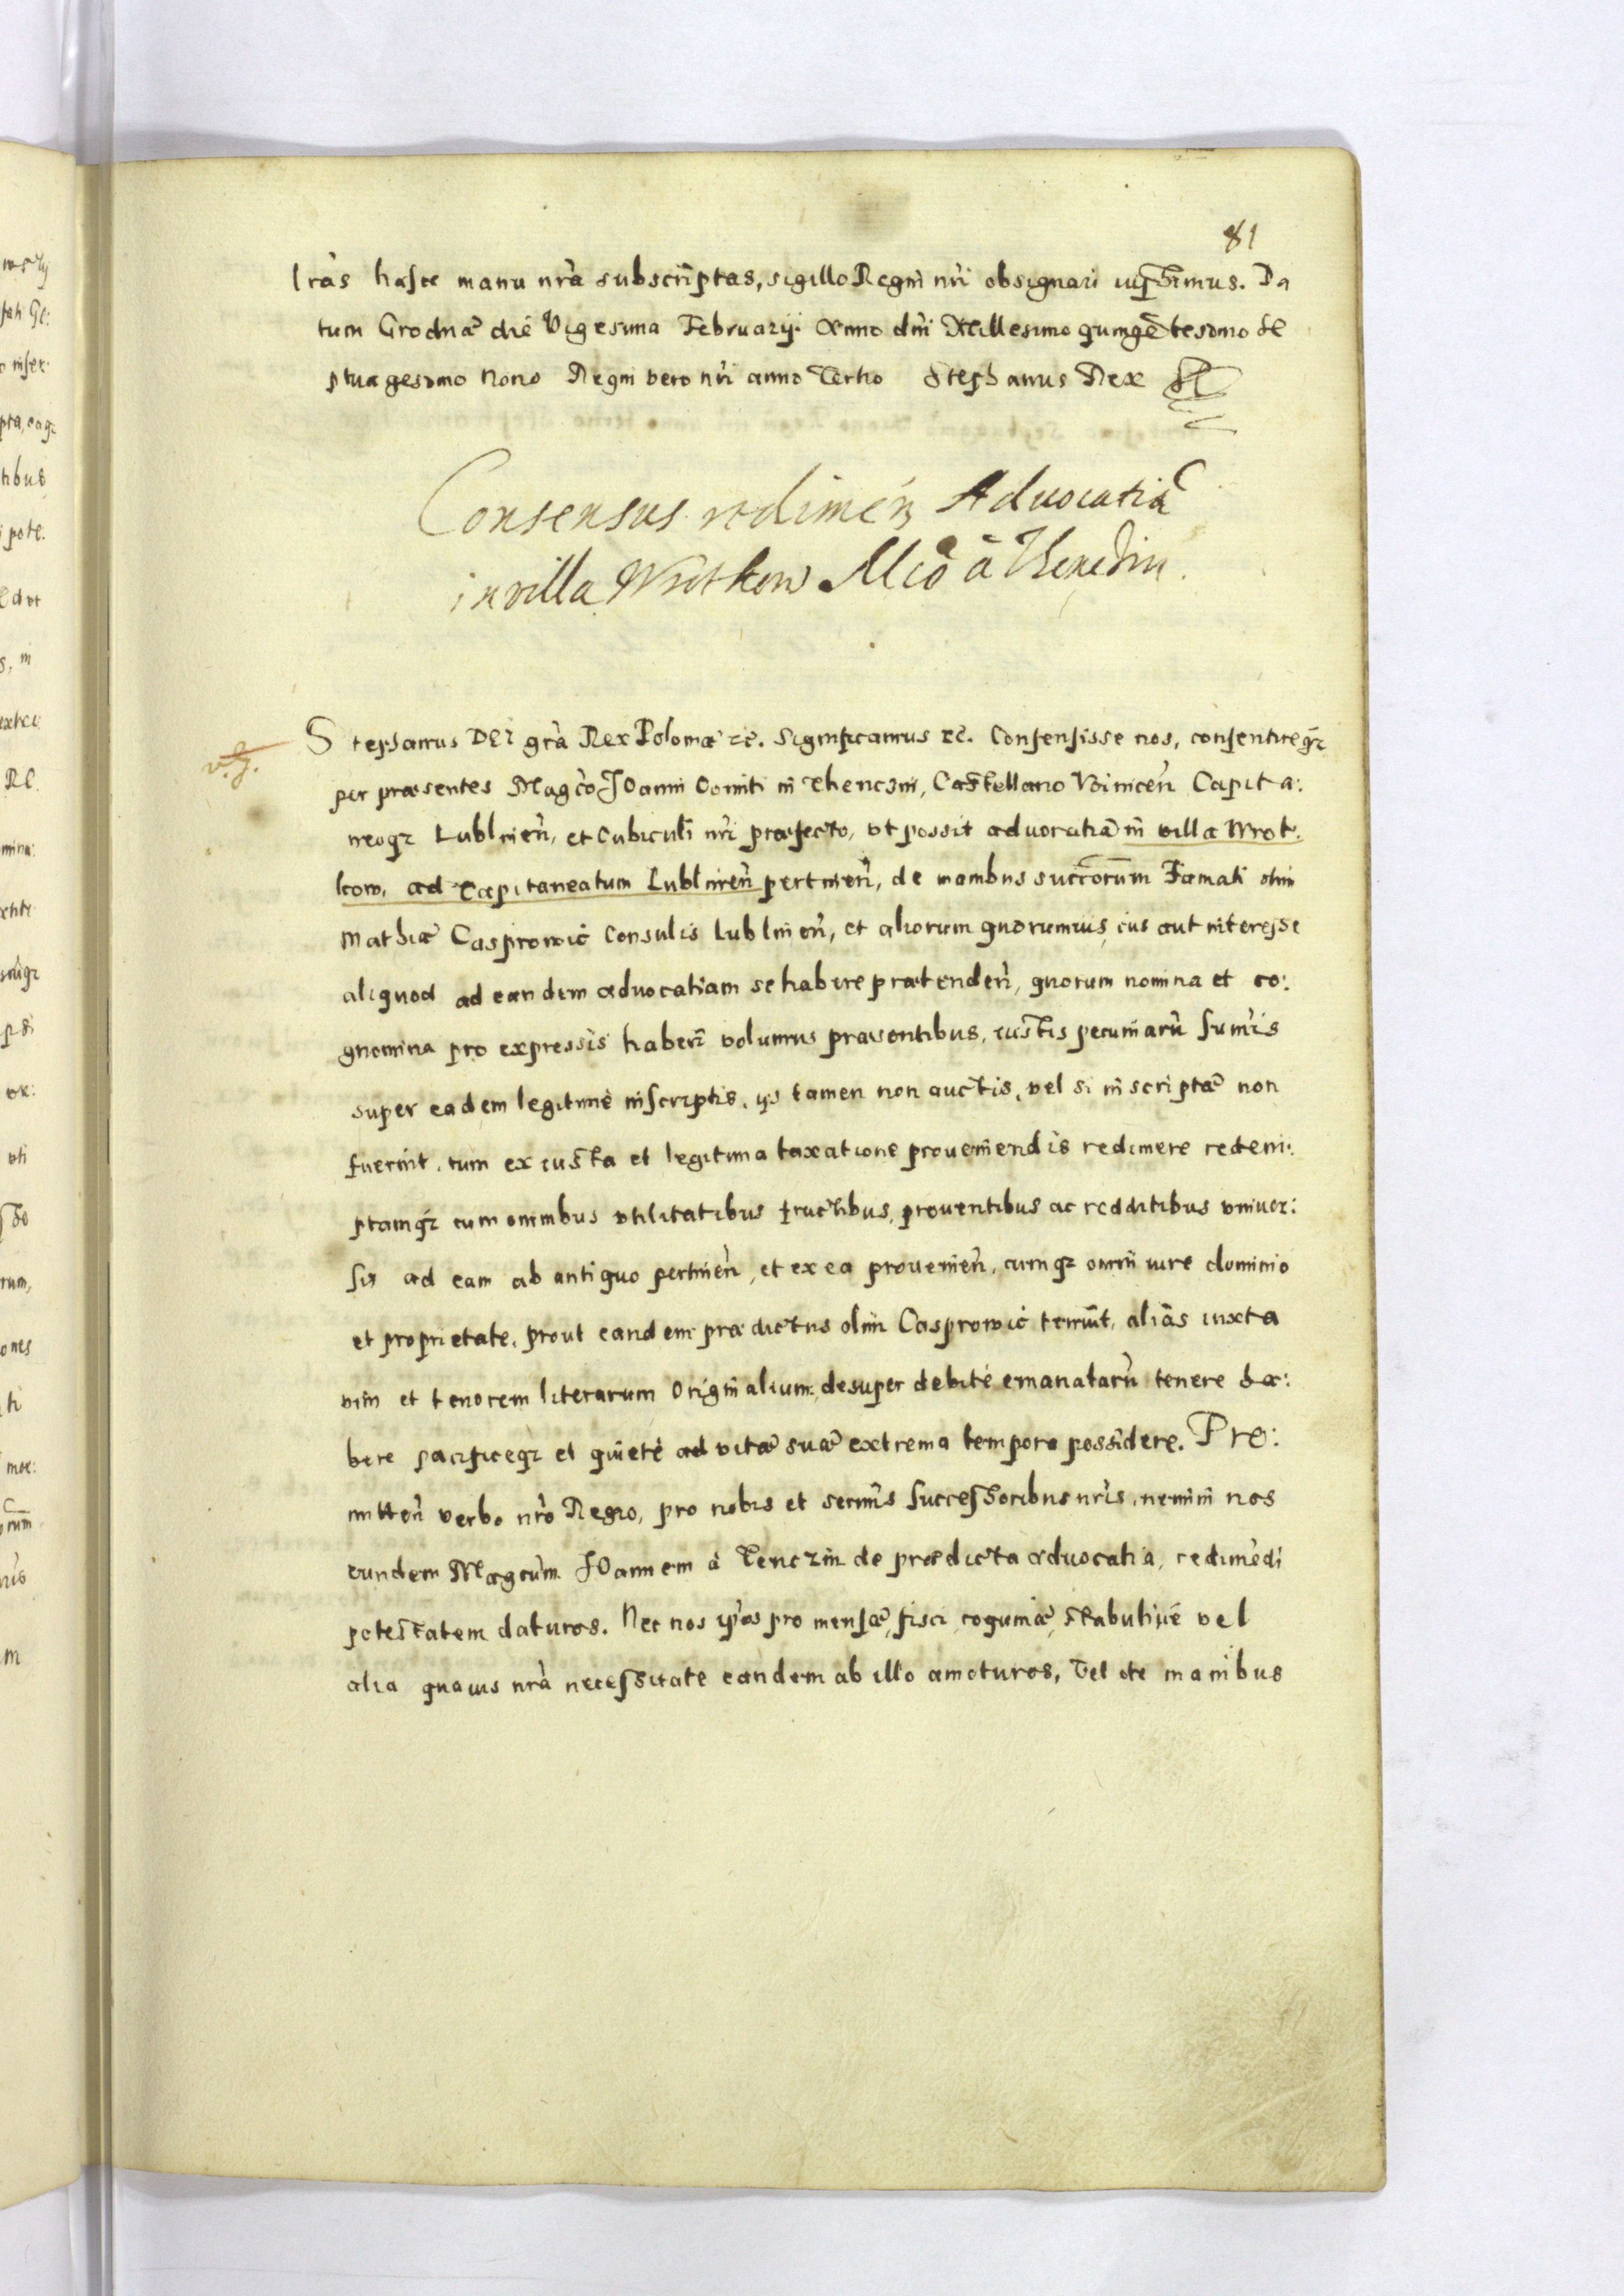 81
lrãs hasce manu nrã subscriptas, sigillo Regni nri obsignari iussimus. Da
tum Grodnæ die Vigesima Februarij. Anno dni Millesimo quingẽtesimo se
ptuagesimo Nono Regni vero nri anno Tertio Stephanus Rex
Consensus redimeñ Advocatiã
in villa Wrotkow Mco à Thenczin
Stephanus DEI grã Rex Poloniæ etc. Significamus etc. Consensisse nos, consentireq;
per præsentes Magco JOanni Comiti in Thenczin, Castellano Voiniceñ Capita:
neoq; Lublineñ, et Cubiculi nri præfecto, vt possit advocatiã in villa Wrot:
kow, ad Capitaneatum Lublineñ pertineñ, de manibus succorum Famati olim
Mathiæ Casprowic Consulis Lublineñ, et aliorum quorumuis, ius aut interesse
aliquod ad eandem advocatiam se habere prætendeñ, quorum nomina et co:
gnomina pro expressis haberi volumus præsentibus, iustis pecuniarũ sumis
super eadem legitimè inscriptis, ijs tamen non auctis, vel si inscriptæ non
fuerint, tum ex iusta et legitima taxatione proueniendis redimere redem:
ptamq; cum omnibus vtilitatibus fructibus, prouentibus ac redditibus vniuer:
sis ad eam ab antiquo pertineñ, et ex ea proueñieñ, cumq; omni iure dominio
et proprietate, prout eandem prædictus olim Casprowic tenuit, aliàs iuxta
vim et tenorem literarum Originalium desuper debitè emanatarũ tenere ha:
bere pacificeq; et quietè ad vitæ suæ extrema tempora possidere. Pro:
mitteñ verbo nro Regio, pro nobis et sermis Successoribus nris, nemini nos
eundem Magcum JOannem à Tenczin de prædicta advocatia, redimẽdi
potestatem daturos. Nec nos ipsos pro mensæ, fisci, coquinæ, stabuliue vel
alia quauis nrã necessitate eandem ab illo amoturos, Vel de manibus